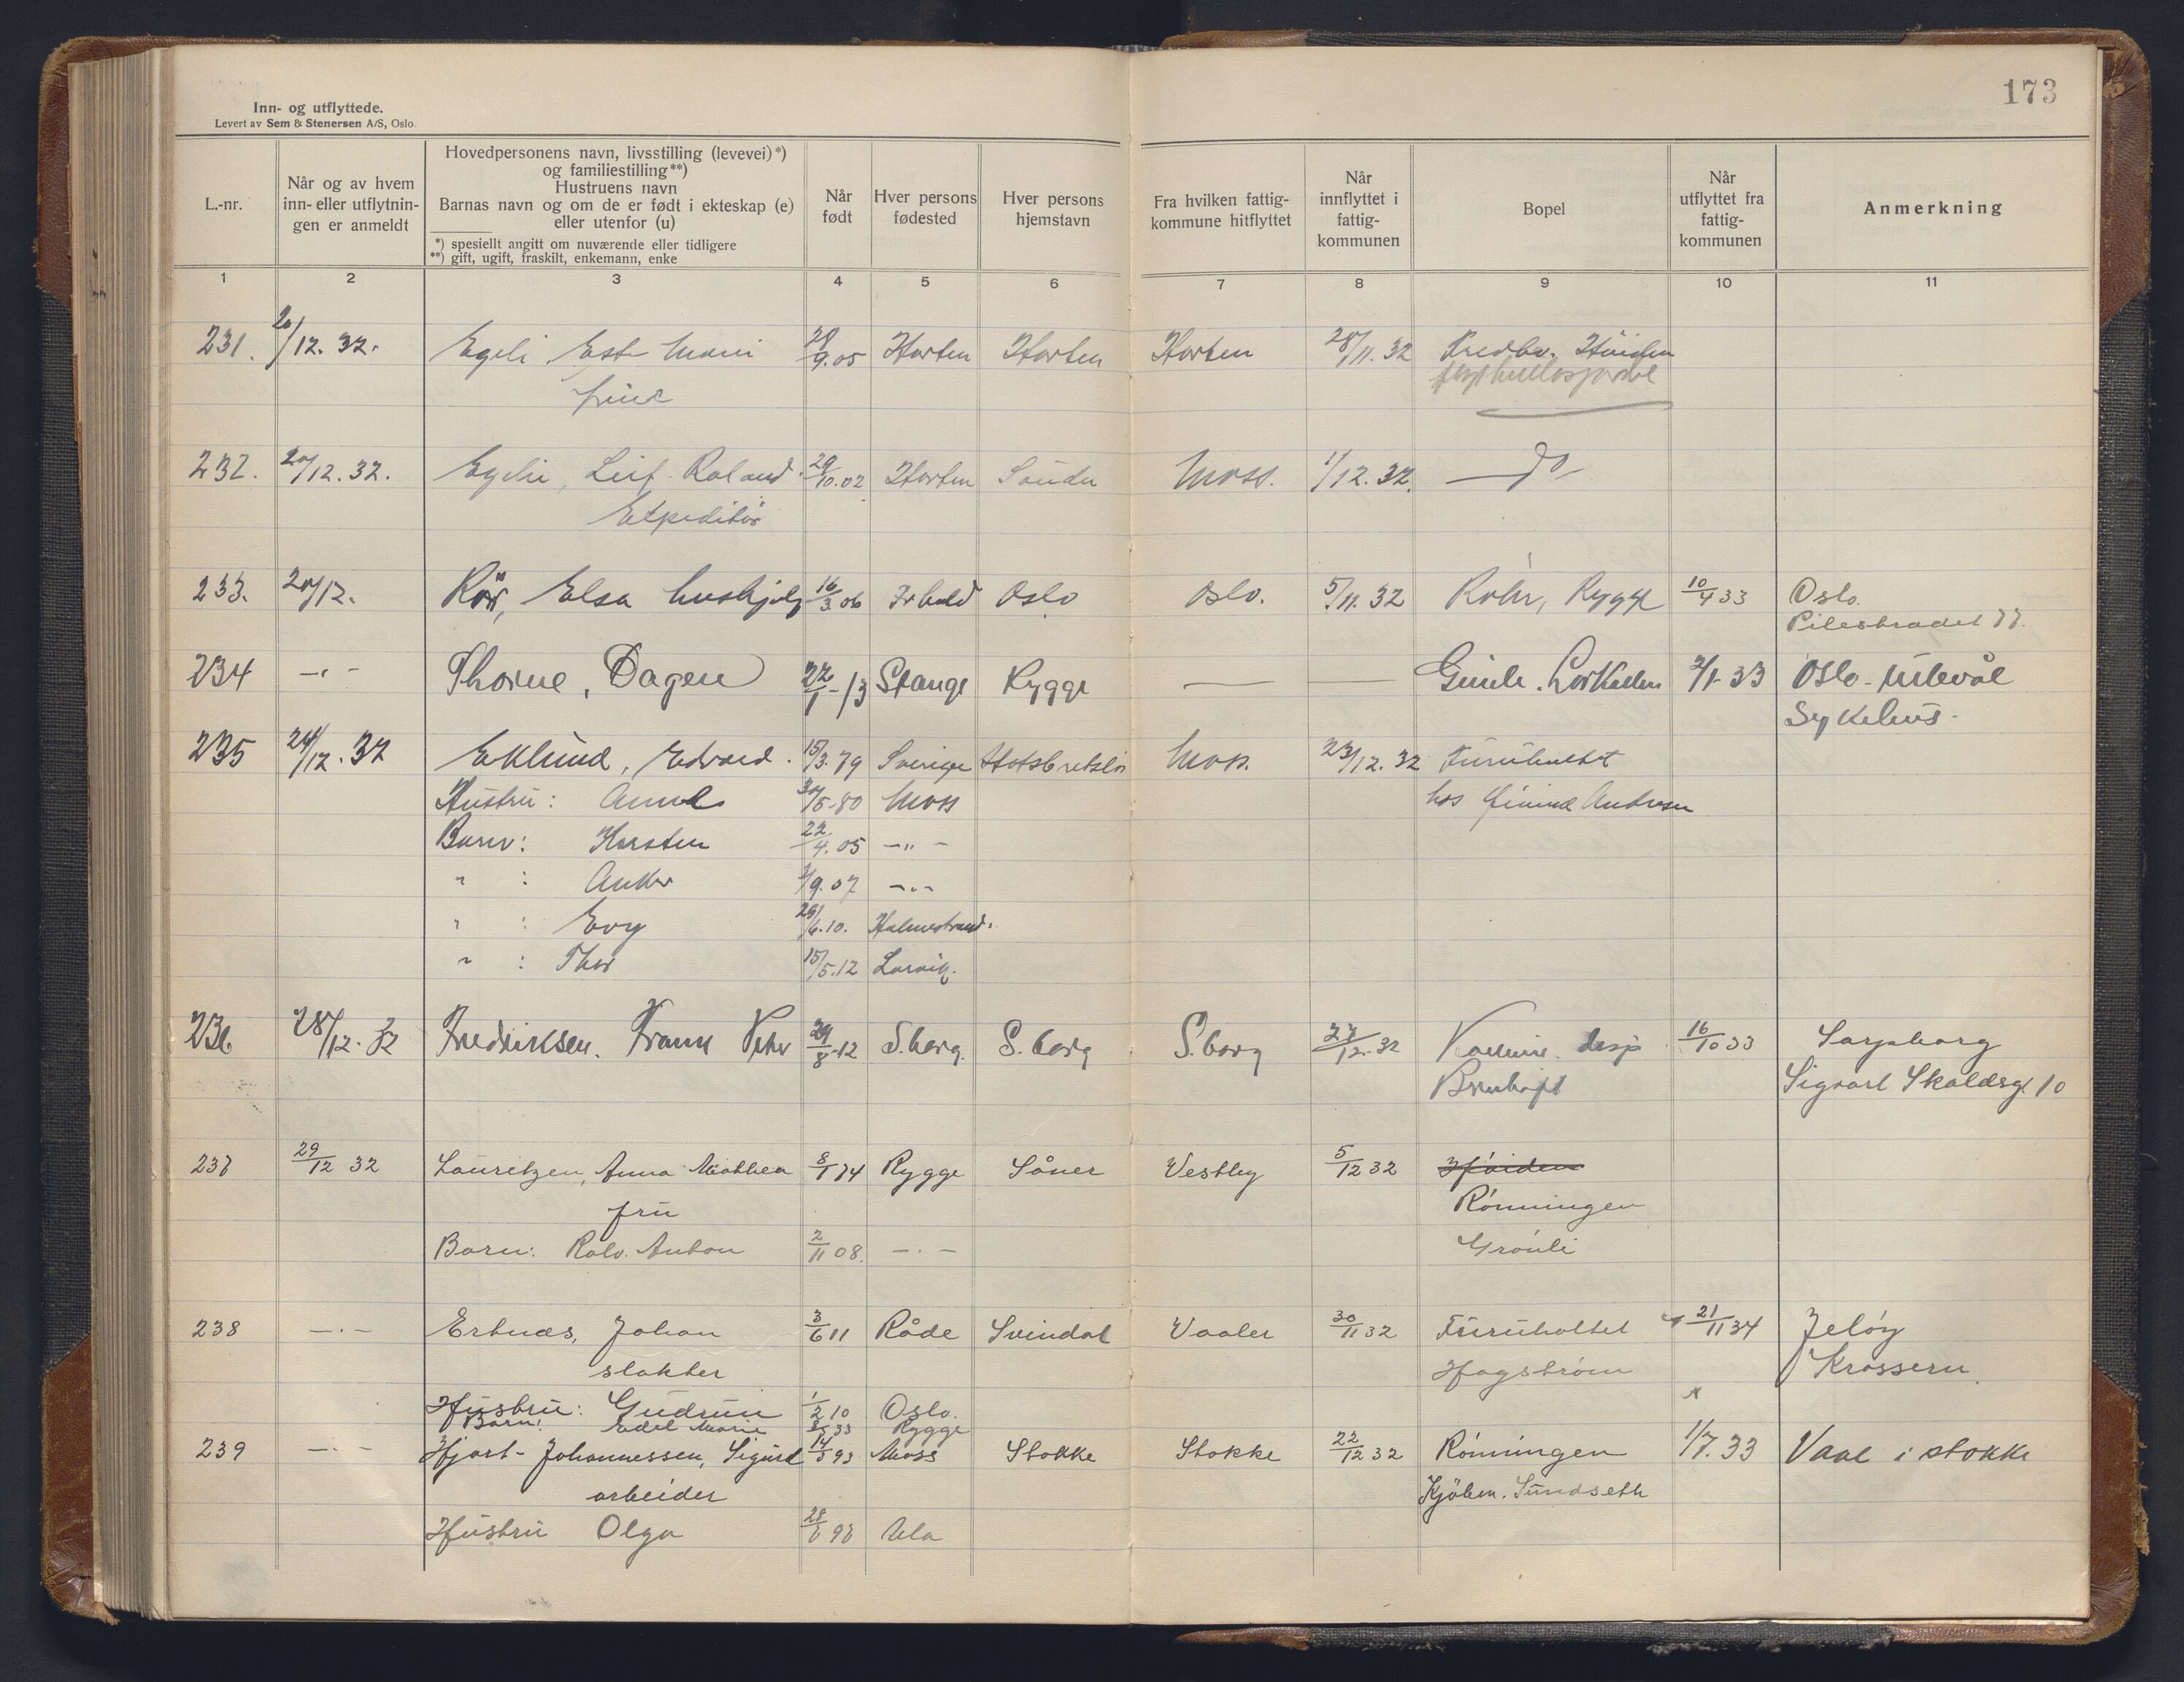 173
Inn- og utflyttede.
Levert av Sem & Stenersen A/S, Oslo.
L.-nr.
Når og av hvem
inn- eller utflytnin-
gen er anmeldt
Hovedpersonens navn, livsstilling (levevei)*)
og familiestilling**)
Hustruens navn
Barnas navn og om de er født i ekteskap (e)
eller utenfor (u)
*) spesiellt angitt om nuværende eller tidligere
**) gift, ugift, fraskilt, enkemann, enke
Når
født
Hver persons
fødested
Hver persons
hjemstavn
Fra hvilken fattig-
kommune hitflyttet
Når
innflyttet i
fattig-
kommunen
Bopel
Når
utflyttet fra
fattig-
kommunen
Anmerkning
1 2 3 4 5 6 7 8 9 10 11
231. 20/12. 32. Egeli 9.05 Horten Horten Horten 28/11. 32
232. 20/12. 32. Egeli, Leif Roland 29/10.02 Horten Moss. 1/12. 32. do
Ekspeditør
233. 20/12. Elsa hushjelp 16/3 06 Oslo Oslo. 5/11. 32 Röhr, Rygge 10/4 33 Oslo.
Pilestradet 77.
234 -"- Thorne, Dagen 22/1-13 Stange Rygge — — 2/1-33 Oslo-Ullevål
Sykehus.
235 24/12. 32 Eklund, Edvard. 15/3.79 Sverige Moss. 23/12. 32 Furuholtet
Hustru: Anna 30/5-80 Moss hos Andresen
Barn: Karsten 22/4.05 -"-
" : Anker 2/9.07 -"-
" : Evy 6.10. Holmestrand.
" : Thor 15/5.12 Larvik.
236 28/12. 32 Fredriksen. Frank Peter 29/8-12 S.borg. S.borg S.borg 27/12-32 16/10 33 Sarpsborg
Sigvart Skaldsgt 10
237 29/12 32 Lauritzen, Anna Mathea 8/1 74 Rygge Såner Vestby 5/12 32 Høiden
fru Rønningen
Barn: Rolv. Anton 2/11 08. -"- Grønli
238 -"- Ertnæs, Johan 3/6 11 Råde Svindal Vaaler 30/11 32 Furuholtet 21/11 34 Jeløy
slakter Hagstrøm Krossern
Hustru: Gudrun 1/2 10 Oslo.
Barn: Edel Marie 33 Rygge
239 -"- Hjort-Johannessen, Sigurd 14/5 93 Moss Stokke Stokke 22/12 32 Rønningen 1/7. 33 Vaal i stokke
arbeider Kjøbm. Sundseth
Hustru Olga